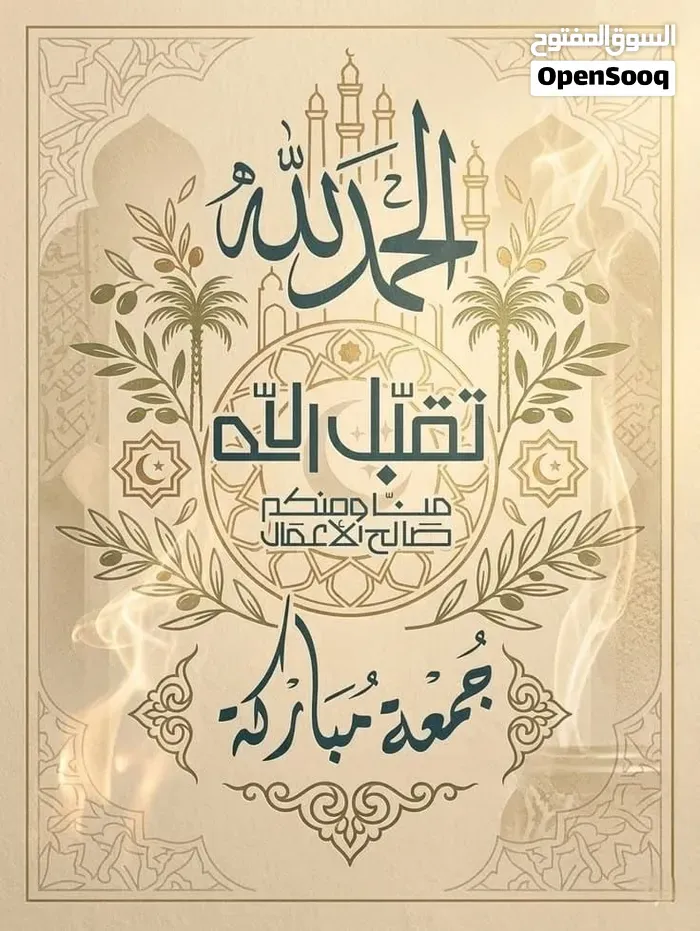 السوق المفتوح
OpenSooq
الحمد لله
تقبّل الله
منّا ومنكم
صالح الأعمال
جُمعة مُباركة